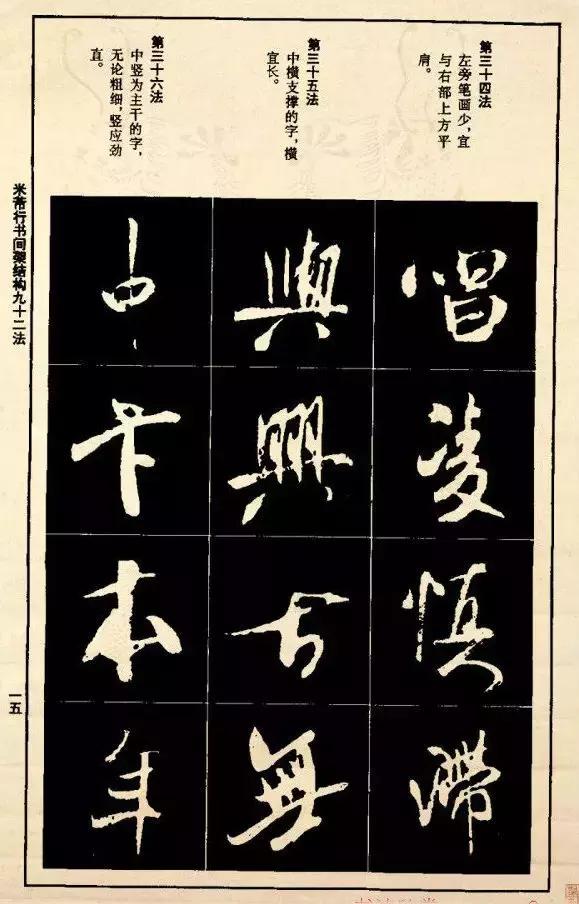 第三十四法
左旁笔画少，宜
与右部上方平
肩。
第三十五法
中横支撑的字，横
宜长。
第三十六法
中竖为主干的字，
无论粗细，竖应劲
直。
唱
凌
慎
滞
與
興
古
無
中
卞
本
年
米芾行书间架结构九十二法
一五